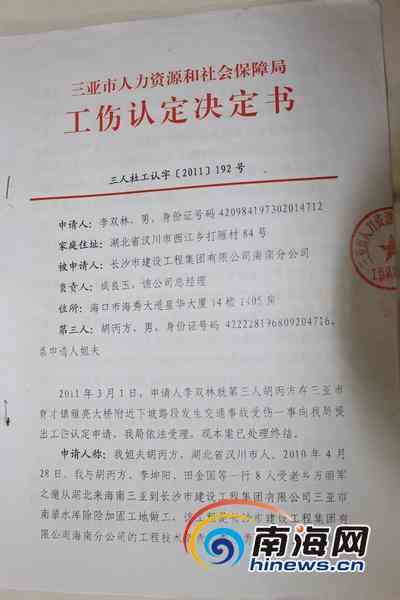 三亚市人力资源和社会保障局
工伤认定决定书
三人社工认字〔2011〕192号
申请人：李双林，男，身份证号码420984197302014712
家庭住址：湖北省汉川市西江乡打雁村84号
被申请人：长沙市建设工程集团有限公司海南分公司
负责人：成良玉，该公司总经理
住所：海口市海秀大道星华大厦14楼1405房
第三人：胡丙方，男，身份证号码422228196809204716，
系申请人姐夫
2011年3月1日，申请人李双林就第三人胡丙方在三亚市
育才镇雅亮大桥附近下坡路段发生交通事故受伤一事向我局提
出工伤认定申请，我局依法受理。现本案已处理终结。
申请人称：我姐夫胡丙方，湖北省汉川市人，2010年4月
28日，我与胡丙方、李坤阳、田金国等一行8人受老乡万丽军
之邀从湖北来海南三亚到长沙市建设工程集团有限公司三亚市
南掌水库除险加固工地做工，该工程是长沙市建设工程集团有
限公司海南分公司的工程技术
三亚市人力资源
南海网
hinews.cn